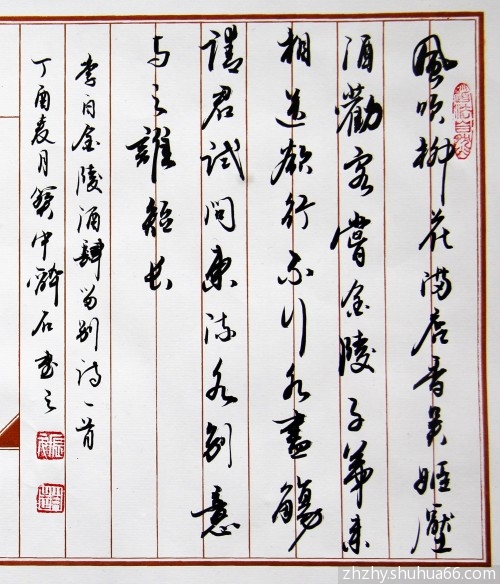 風吹柳花滿店香吳姬壓
酒勸客嘗金陵子弟来
相送欲行不行各盡觴
請君試問東流水別意
与之誰短長
李白金陵酒肆留别詩一首
丁酉麦月冀中醉石書之
zhzhy.shuhua66.com